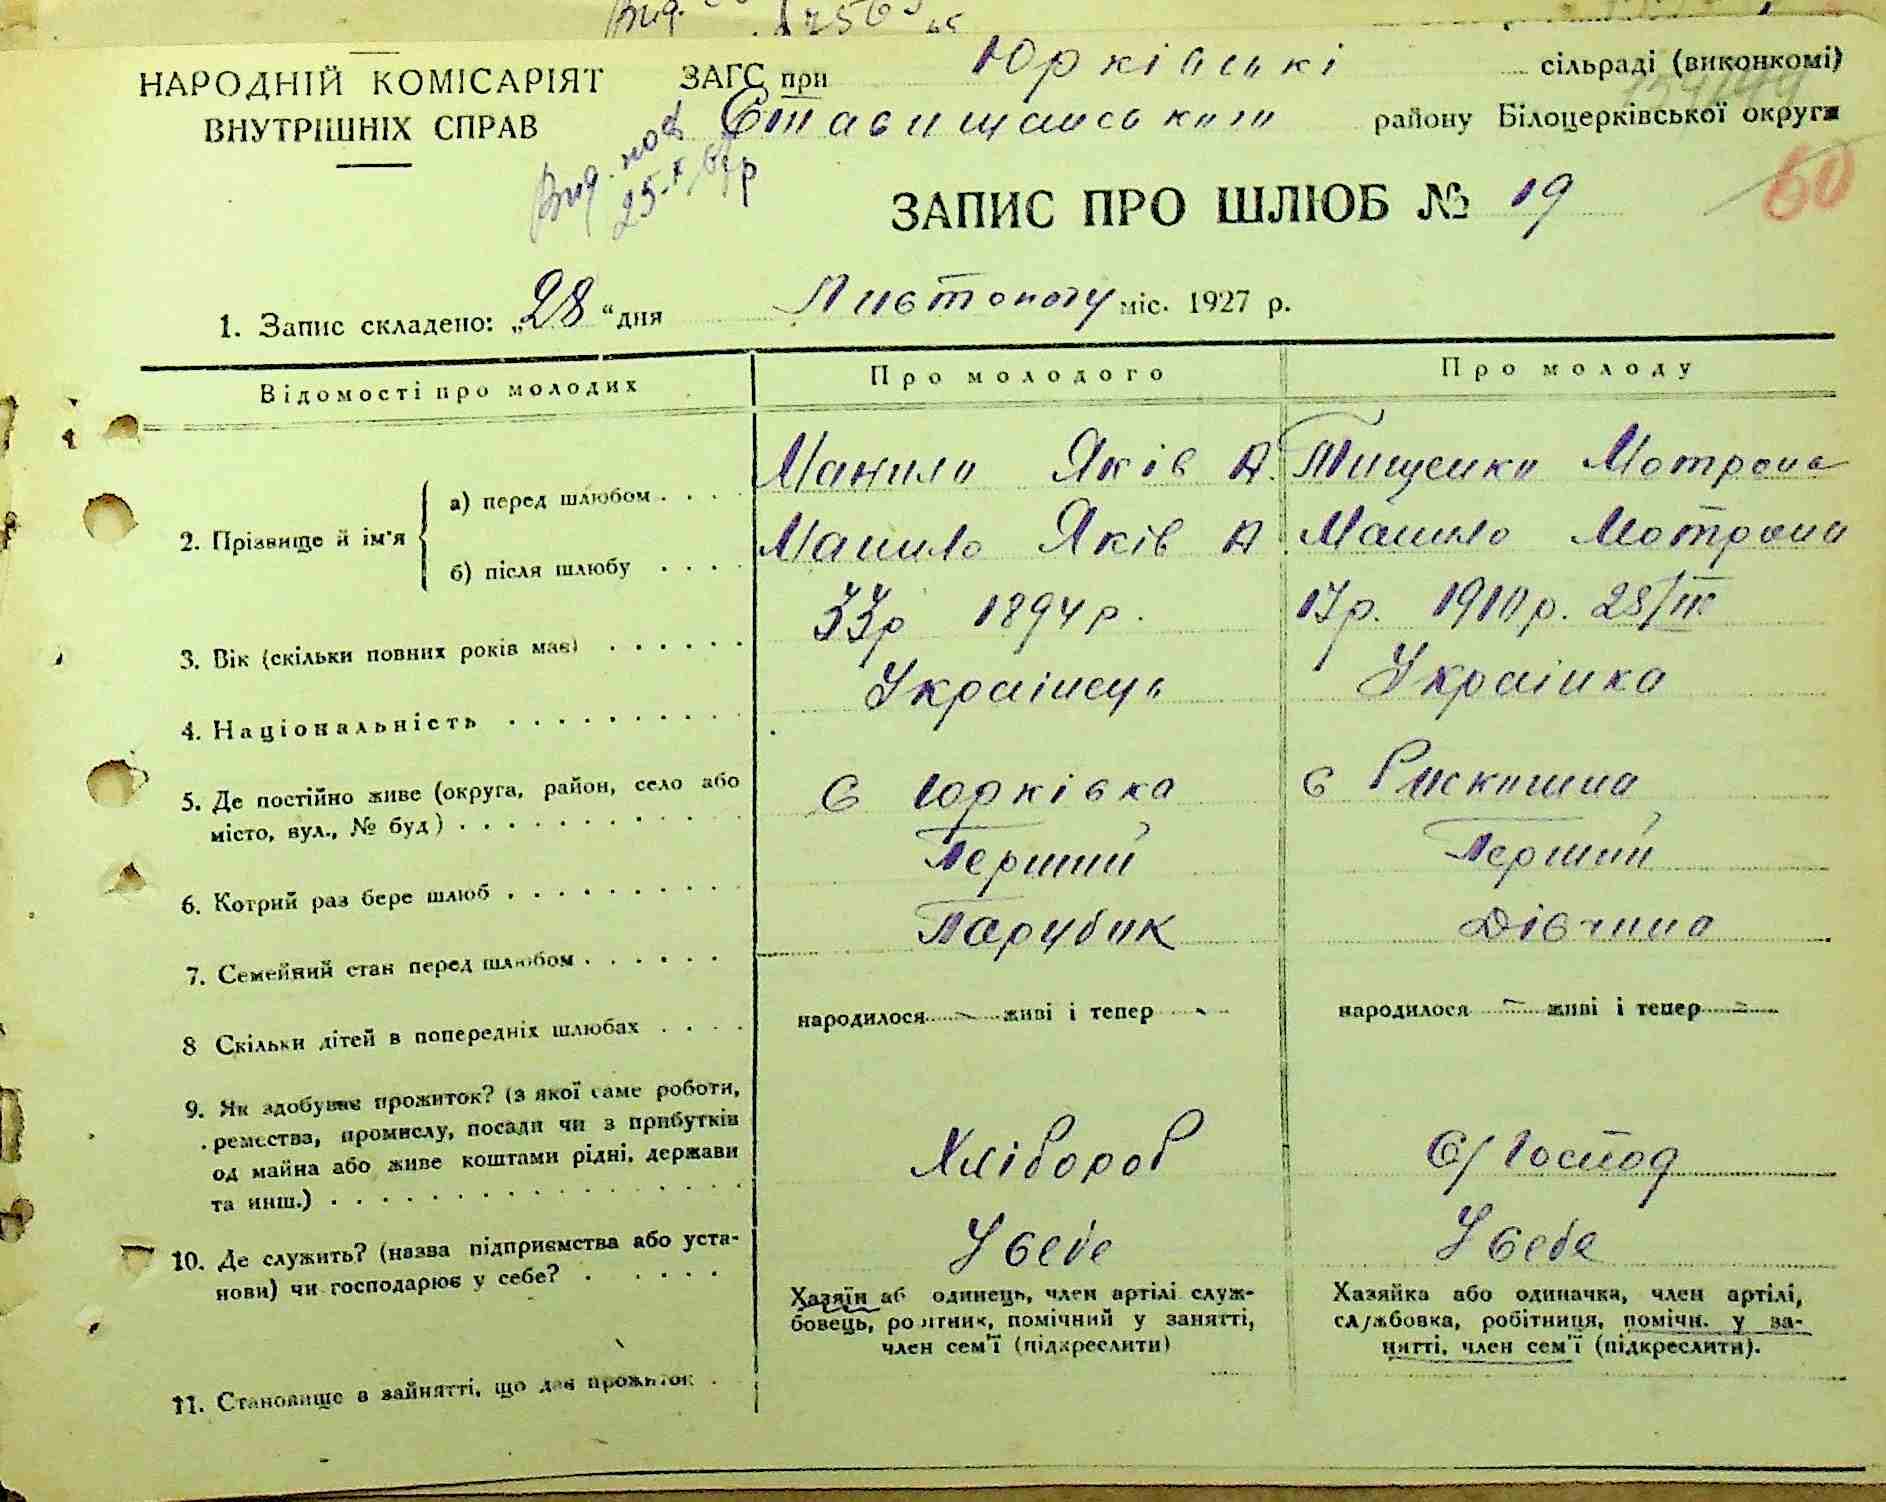 Вид.
НАРОДНІЙ КОМІСАРІЯТ
ВНУТРІШНІХ СПРАВ
ЗАГС при Юрківські сільраді (виконкомі)
Ставищанського району Білоцерківської округи
Вид. нов
25-X
60
ЗАПИС ПРО ШЛЮБ № 19
1. Запис складено: „28“ дня Листопаду міс. 1927 р.
Відомості про молодих Про молодого Про молоду
2. Прізвище й ім'я
а) перед шлюбом . . . . Манило Яків А. Тищенко Мотрона
б) після шлюбу . . . . Манило Яків А Манило Мотрона
3. Вік (скільки повних років має) . . . . . . 33р 1894 р. 17р. 1910 р. 28/III
4. Національність . . . . . . . . . . Українець Українка
5. Де постійно живе (округа, район, село або
місто, вул., № буд) . . . . . . . . . . . . с Юрківка с Роскошна
6. Котрий раз бере шлюб . . . . . . . . . . Перший Перший
7. Семейний стан перед шлюбом . . . . . . Парубик Дівчина
8 Скільки дітей в попередніх шлюбах . . . . народилося - живі і тепер - народилося - живі і тепер -
9. Як здобуває прожиток? (з якої саме роботи,
ремества, промислу, посади чи з прибутків
од майна або живе коштами рідні, держави
та инш.) . . . . . . . . . . . . . . . . Хлібороб С/Господ
10. Де служить? (назва підприємства або уста-
нови) чи господарює у себе? . . . . . . У себе У себе
Хазяїн аб одинець, член артілі служ-
бовець, ро ітник, помічний у занятті,
член сем'ї (підкреслити)
Хазяйка або одиначка, член артілі,
службовка, робітниця, помічн. у за-
нятті, член сем'ї (підкреслити).
11. Становище в зайнятті, що дає прожиток .